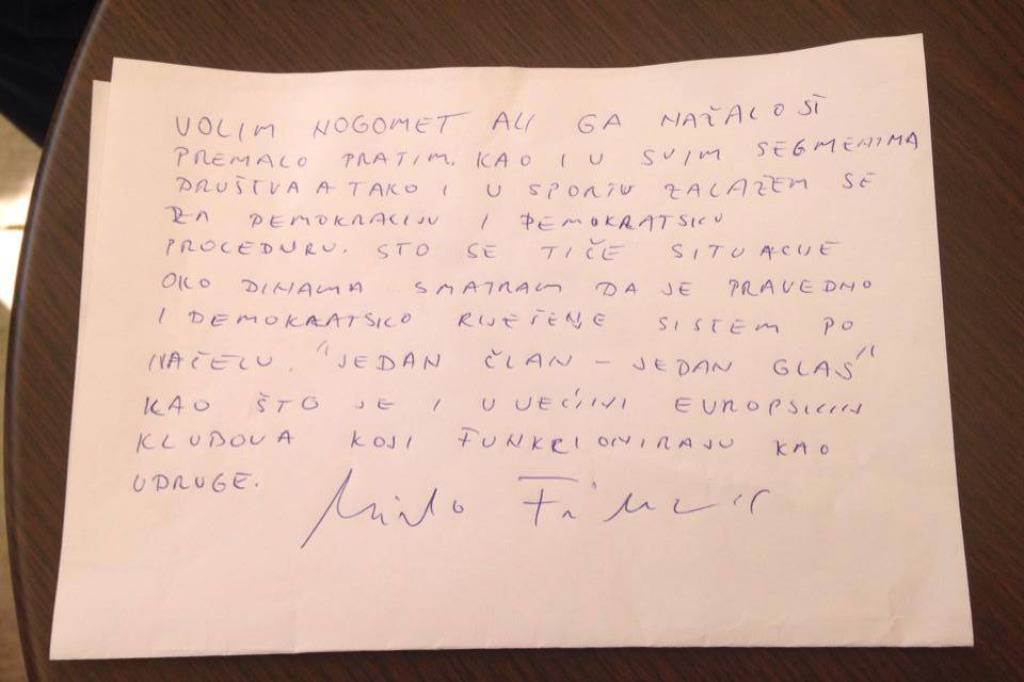 VOLIM NOGOMET ALI GA NAŽALOST
PREMALO PRATIM. KAO I U SVIM SEGMENIMA
DRUŠTVA A TAKO I U SPORTU ZALAŽEM SE
ZA DEMOKRACIJU I DEMOKRATSKU
PROCEDURU. ŠTO SE TIČE SITUACIJE
OKO DINAMA SMATRAM DA JE PRAVEDNO
I DEMOKRATSKO RJEŠENJE SISTEM PO
NAČELU "JEDAN ČLAN - JEDAN GLAS"
KAO ŠTO JE I U VEĆINI EUROPSKIH
KLUBOVA KOJI FUNKCIONIRAJU KAO
UDRUGE.